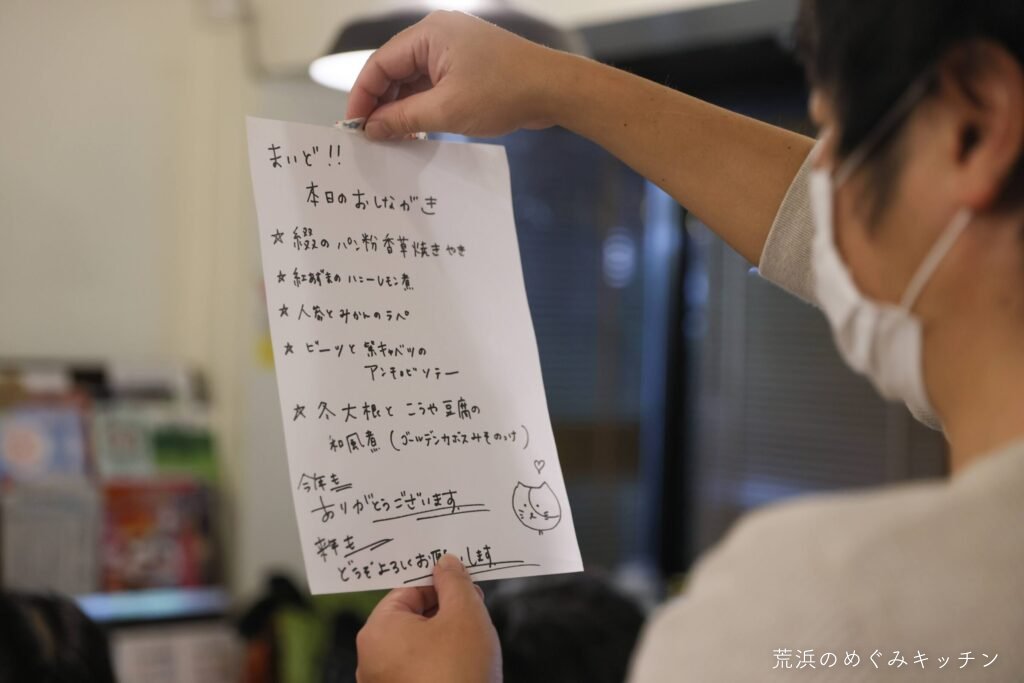 まいど!!
本日のおしながき
☆ 綴の パン粉香草焼き やき
☆ 紅あずまの ハニーレモン煮
☆ 人参とみかんのラペ
☆ ビーツと 紫キャベツの
アンチョビソテー
☆ 冬大根と こうや豆腐の
和風煮 (ゴールデンカボスみそのけ)
今年も
ありがとうございます
来年も
どうぞよろしくお願いします
荒浜のめぐみキッチン